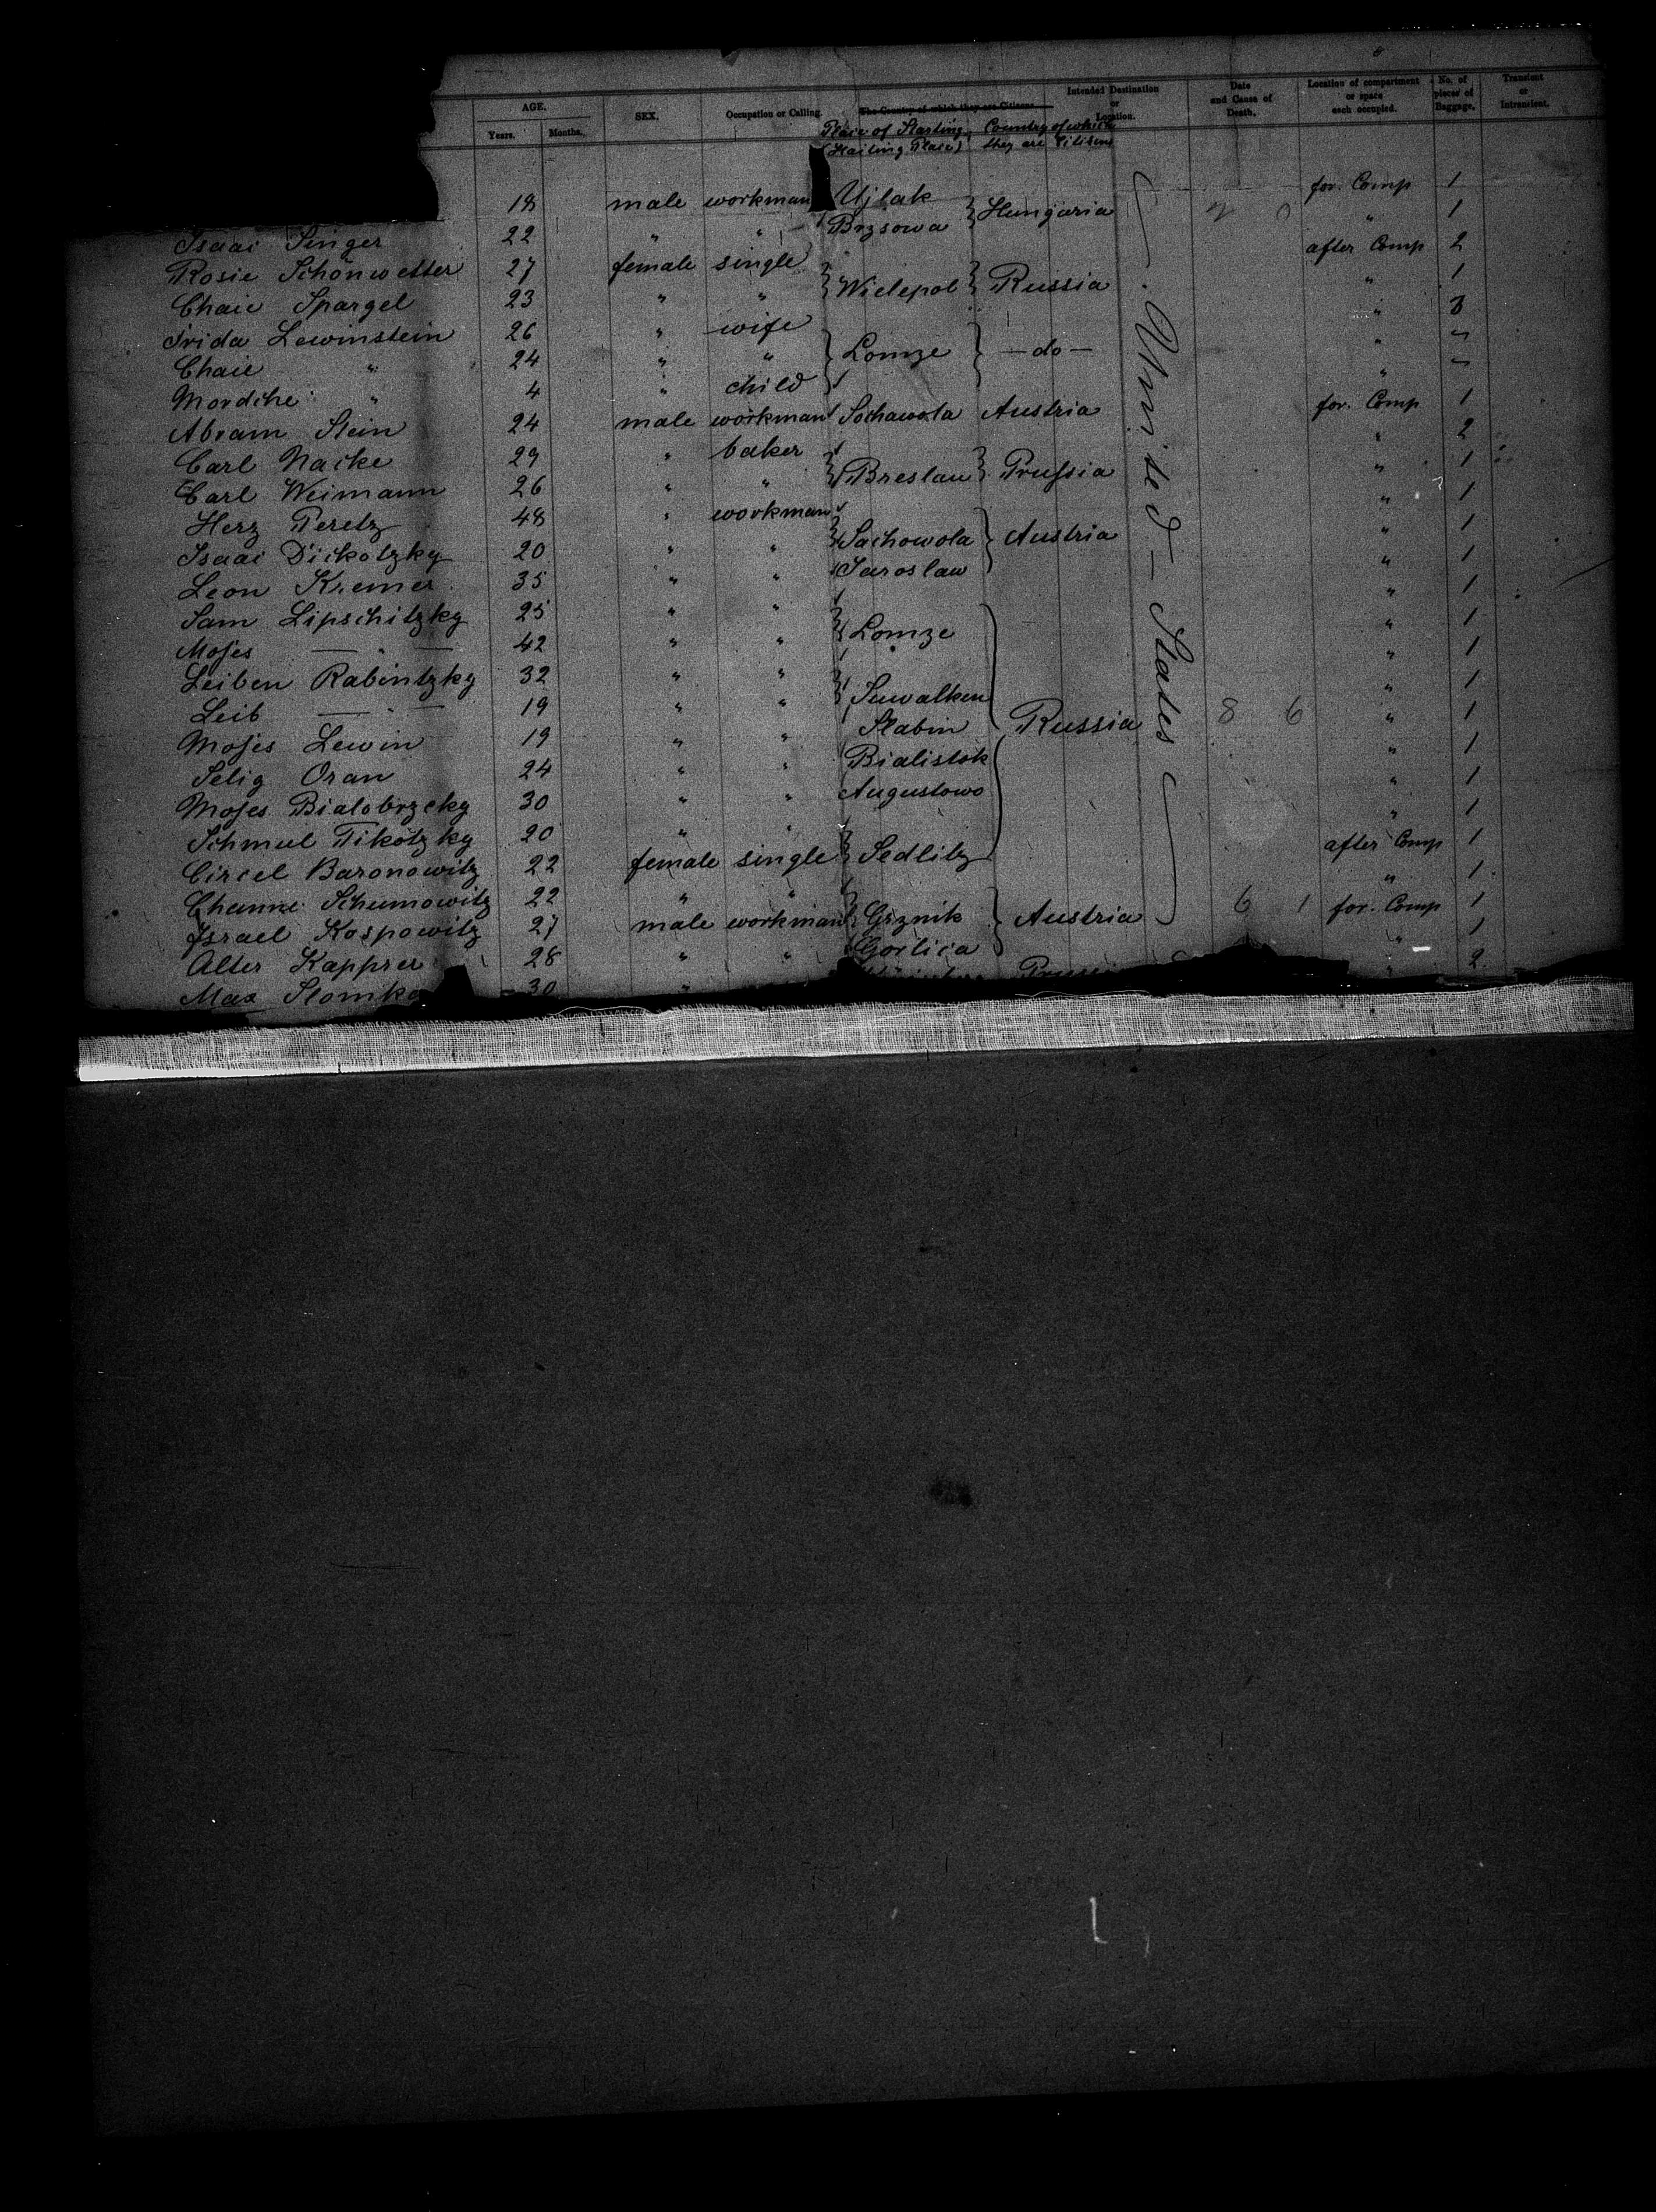 AGE. SEX. Occupation or Calling. The Country of which they are Citizens. Intended Destination or Location. Date and Cause of Death. Location of compartment or space each occupied. No. of pieces of Baggage. Transient or Intransient.
Years. Months. Place of Starting (Hailing Place) Country of which they are Citizens
18 male workman Ujlak Hungaria for. Comp 1
Isaac Singer 22 " " Brzsowa " 1
Rosie Schönwetter 27 female single Wielepol Russia after Comp 2
Chaie Spargel 23 " " " 1
Frida Lewinstein 26 " wife Lomze — do — " 3
Chaie " 24 " " "
Mordche " 4 " child "
Abram Stein 24 male workman Sochawola Austria for. Comp 1
Carl Nacke 29 " baker Breslau Prussia " 2
Carl Weimann 26 " " " 1
Herz Peretz 48 " workman Sachowola Austria " 1
Isaac Dickotzky 20 " " " 1
Leon Kremer 35 " " Jaroslaw " 1
Sam Lipschitzky 25 " " Lomze " 1
Moses — " — 42 " " " 1
Leiben Rabintzky 32 " " Suwalken " 1
Leib — " — 19 " " " 1
Moses Lewin 19 " " Stabin Russia 8 6 " 1
Selig Oran 24 " " Bialistok " 1
Moses Bialobrzcky 30 " " Augustowo " 1
Schmul Tikotzky 20 " " " 1
Circel Baronowitz 22 female single Sedlitz after Comp 1
Channe Schumowitz 22 " " " 1
Israel Kospowitz 27 male workman Grznik Austria 6 1 for. Comp 1
Alter Kappser 28 " " Gorlica " 1
Max Slomka 30 " " 2
United — States